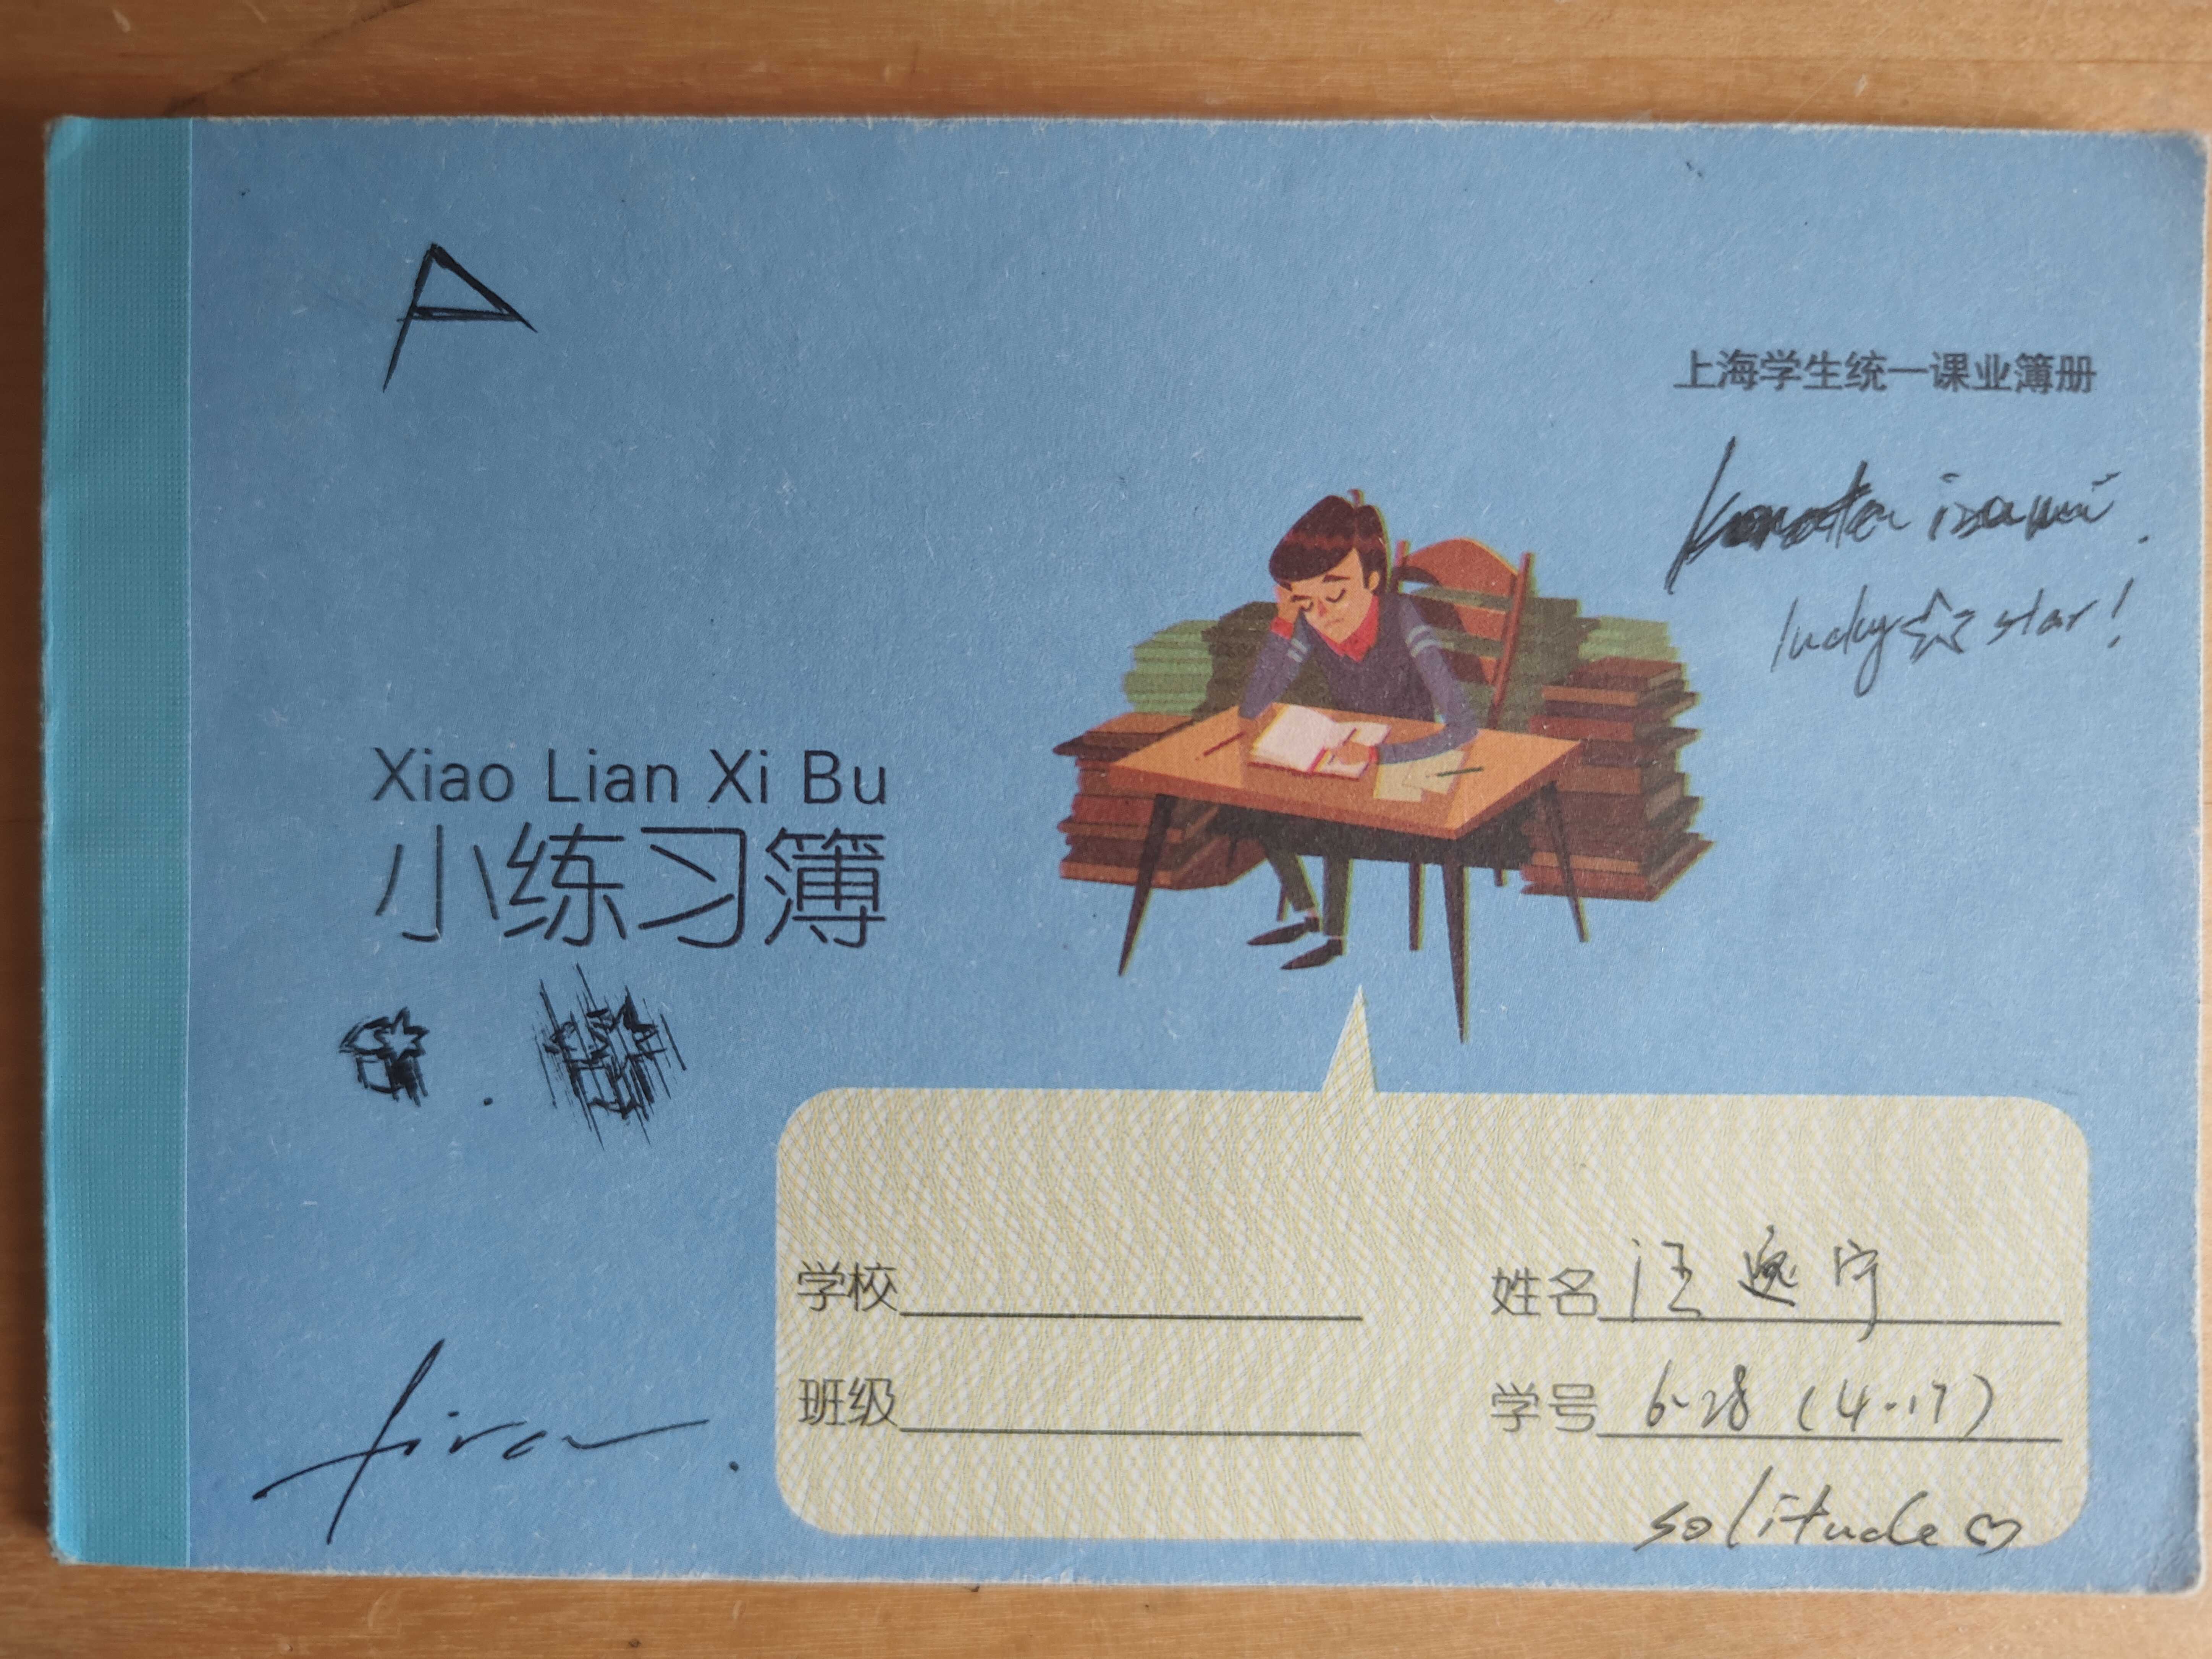 A
上海学生统一课业簿册
konata izumi.
lucky☆star!
Xiao Lian Xi Bu
小练习簿
学校
姓名 汪逸宁
班级
学号 6-28 (4-17)
solitude♡